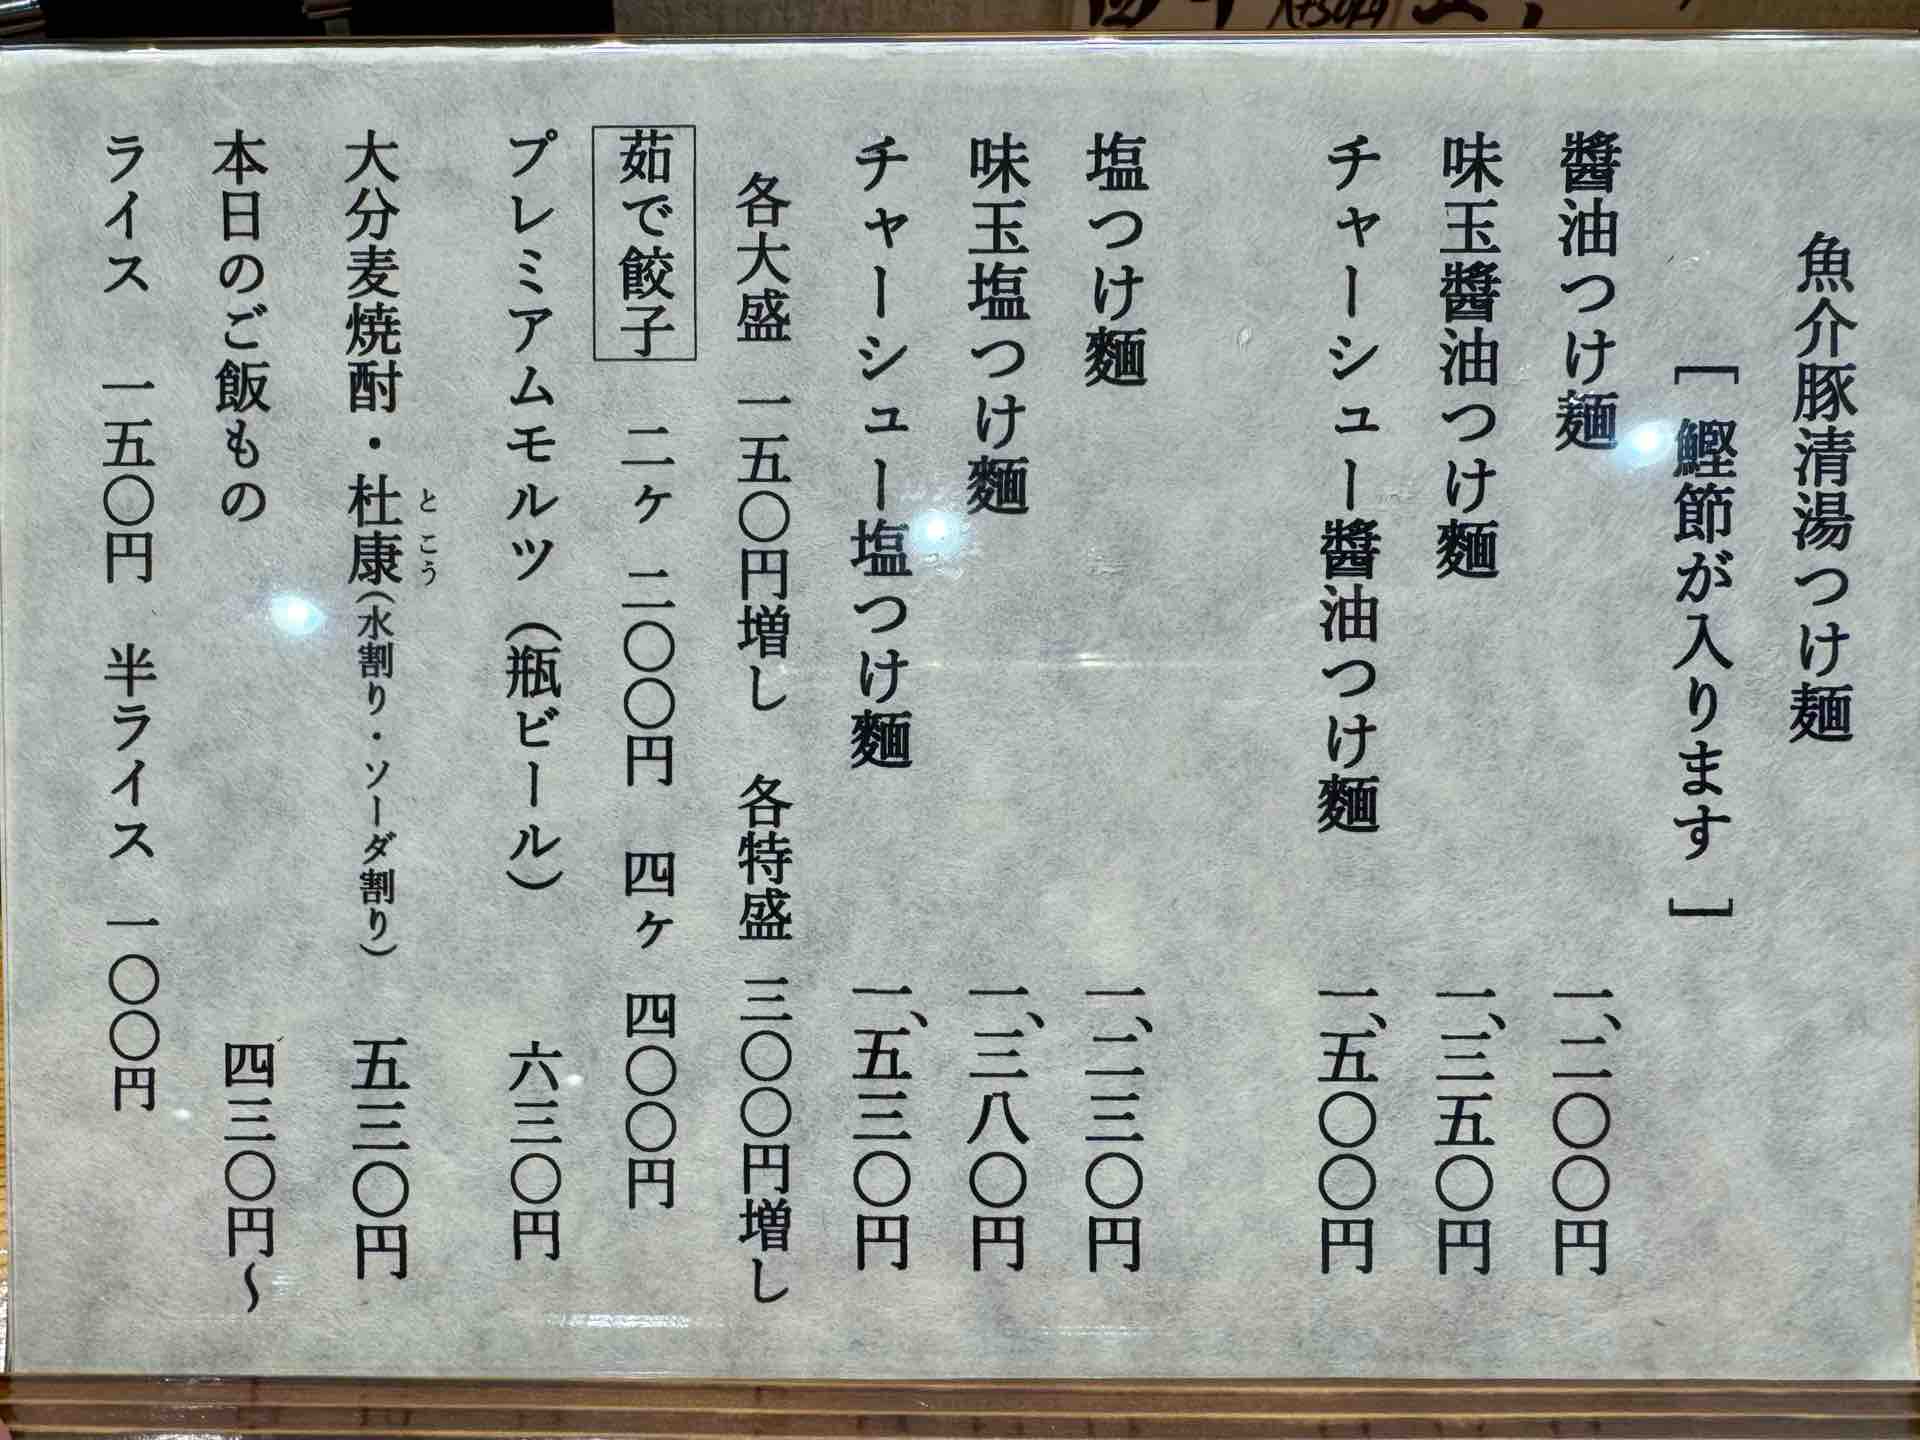 魚介豚清湯つけ麺
[鰹節が入ります]
醬油つけ麺 一、二〇〇円
味玉醬油つけ麵 一、三五〇円
チャーシュー醬油つけ麵 一、五〇〇円
塩つけ麵 一、二三〇円
味玉塩つけ麵 一、三八〇円
チャーシュー塩つけ麵 一、五三〇円
各大盛 一五〇円増し 各特盛 三〇〇円増し
茹で餃子 二ヶ 二〇〇円 四ヶ 四〇〇円
プレミアムモルツ(瓶ビール) 六三〇円
大分麦焼酎・杜康(水割り・ソーダ割り) 五三〇円
とこう
本日のご飯もの 四三〇円〜
ライス 一五〇円 半ライス 一〇〇円